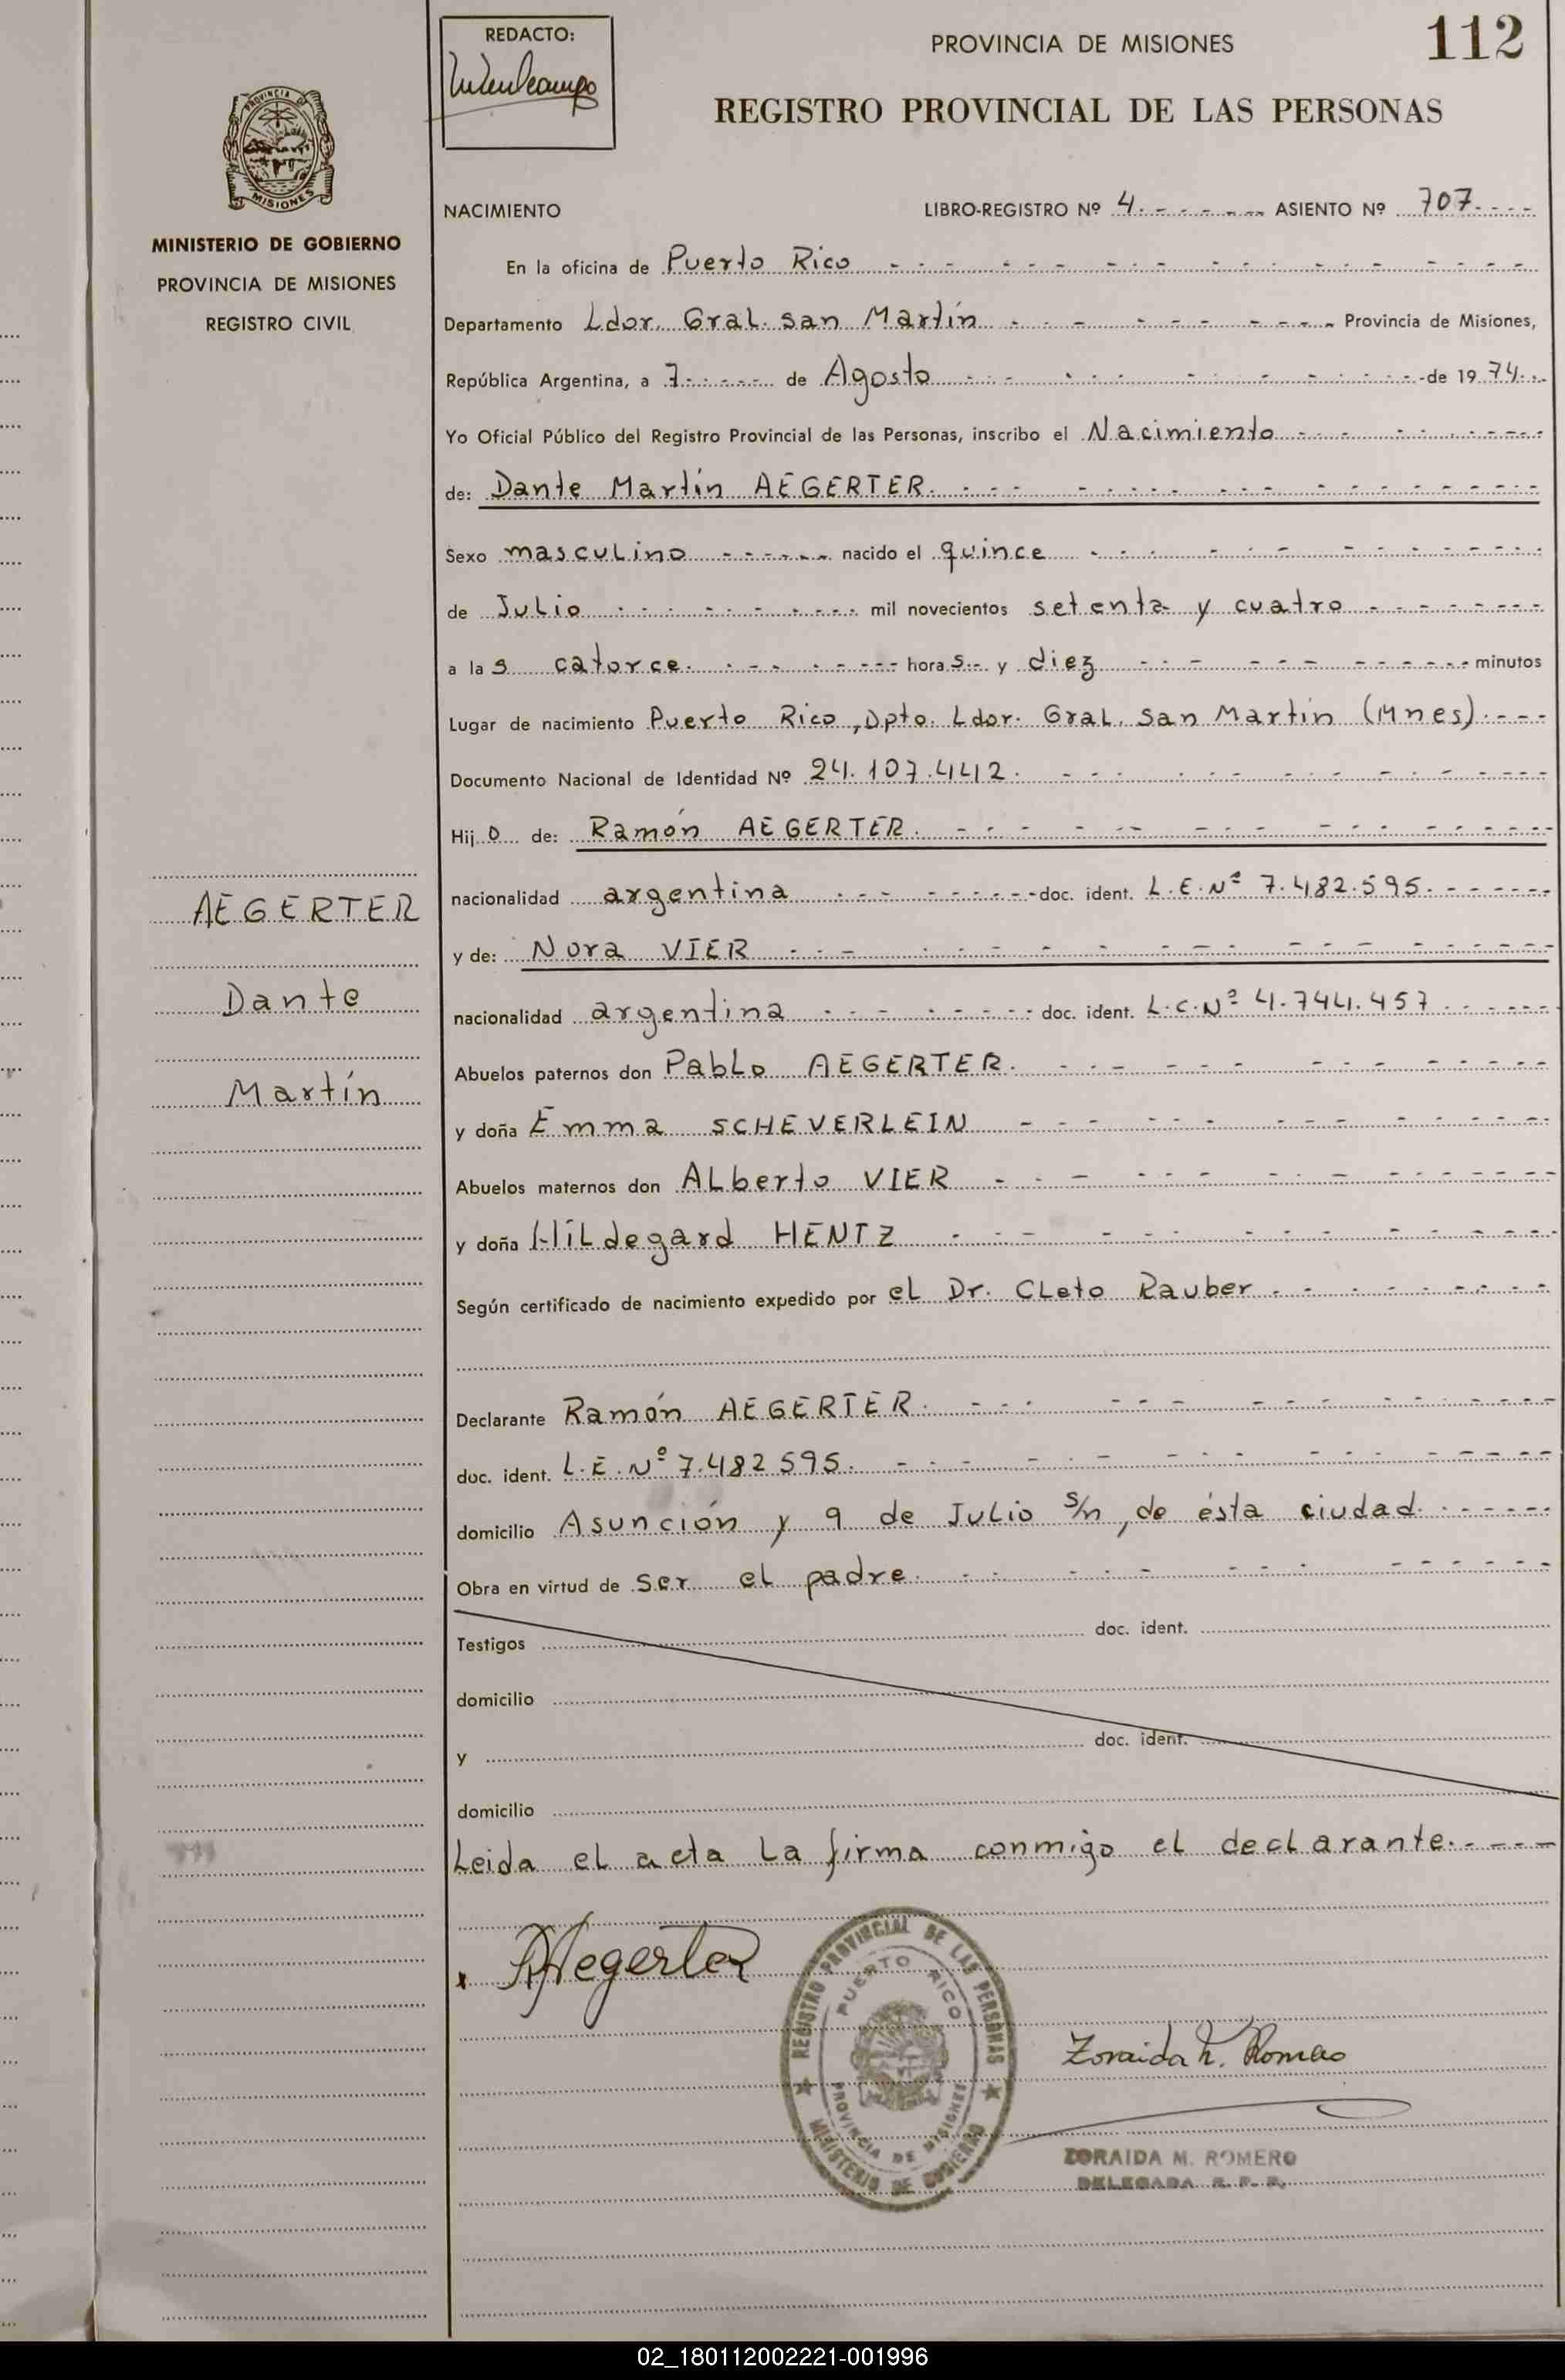 REDACTO:
PROVINCIA DE MISIONES
112
REGISTRO PROVINCIAL DE LAS PERSONAS
PROVINCIA DE
MISIONES
MINISTERIO DE GOBIERNO
PROVINCIA DE MISIONES
REGISTRO CIVIL
NACIMIENTO LIBRO-REGISTRO Nº 4 ASIENTO Nº 707
En la oficina de Puerto Rico
Departamento Ldor. Gral. San Martín Provincia de Misiones,
República Argentina, a 7 de Agosto de 1974
Yo Oficial Público del Registro Provincial de las Personas, inscribo el Nacimiento
de: Dante Martín AEGERTER.
Sexo masculino nacido el quince
de Julio mil novecientos setenta y cuatro
a las catorce. horas y diez minutos
Lugar de nacimiento Puerto Rico, Dpto. Ldor. Gral. San Martín (Mnes).
Documento Nacional de Identidad Nº 24.107.442.
Hijo de: Ramón AEGERTER.
nacionalidad argentina doc. ident. L.E.Nº 7.482.595.
y de: Nora VIER
nacionalidad argentina doc. ident. L.C.Nº 4.744.457
Abuelos paternos don Pablo AEGERTER.
y doña Emma SCHEVERLEIN
Abuelos maternos don Alberto VIER
y doña Hildegard HENTZ
Según certificado de nacimiento expedido por el Dr. Cleto Rauber
Declarante Ramón AEGERTER.
doc. ident. L.E.Nº 7.482595.
domicilio Asunción y 9 de Julio s/n, de ésta ciudad.
Obra en virtud de ser el padre.
Testigos doc. ident.
domicilio
y doc. ident.
domicilio
Leida el acta la firma conmigo el declarante.
AEGERTER
Dante
Martín
RAegerter
REGISTRO PROVINCIAL DE LAS PERSONAS
PUERTO RICO
PROVINCIA DE MISIONES
MINISTERIO DE GOBIERNO
Zoraida M. Romero
ZORAIDA M. ROMERO
DELEGADA R. P. P.
02_180112002221-001996